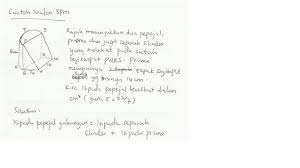 Contoh soalan SPM
Rajah menunjukkan dua pepejal,
prisma dan juga separuh silinder
yang melekat pada satah
segiempat PQRS. Prisma
mempunyai tapak segiempat
14cm.
Kira isipadu pepejal tersebut dalam
cm³ (guna
Solution:
Isipadu pepejal gabungan = isipadu separuh
silinder + isipadu prisma